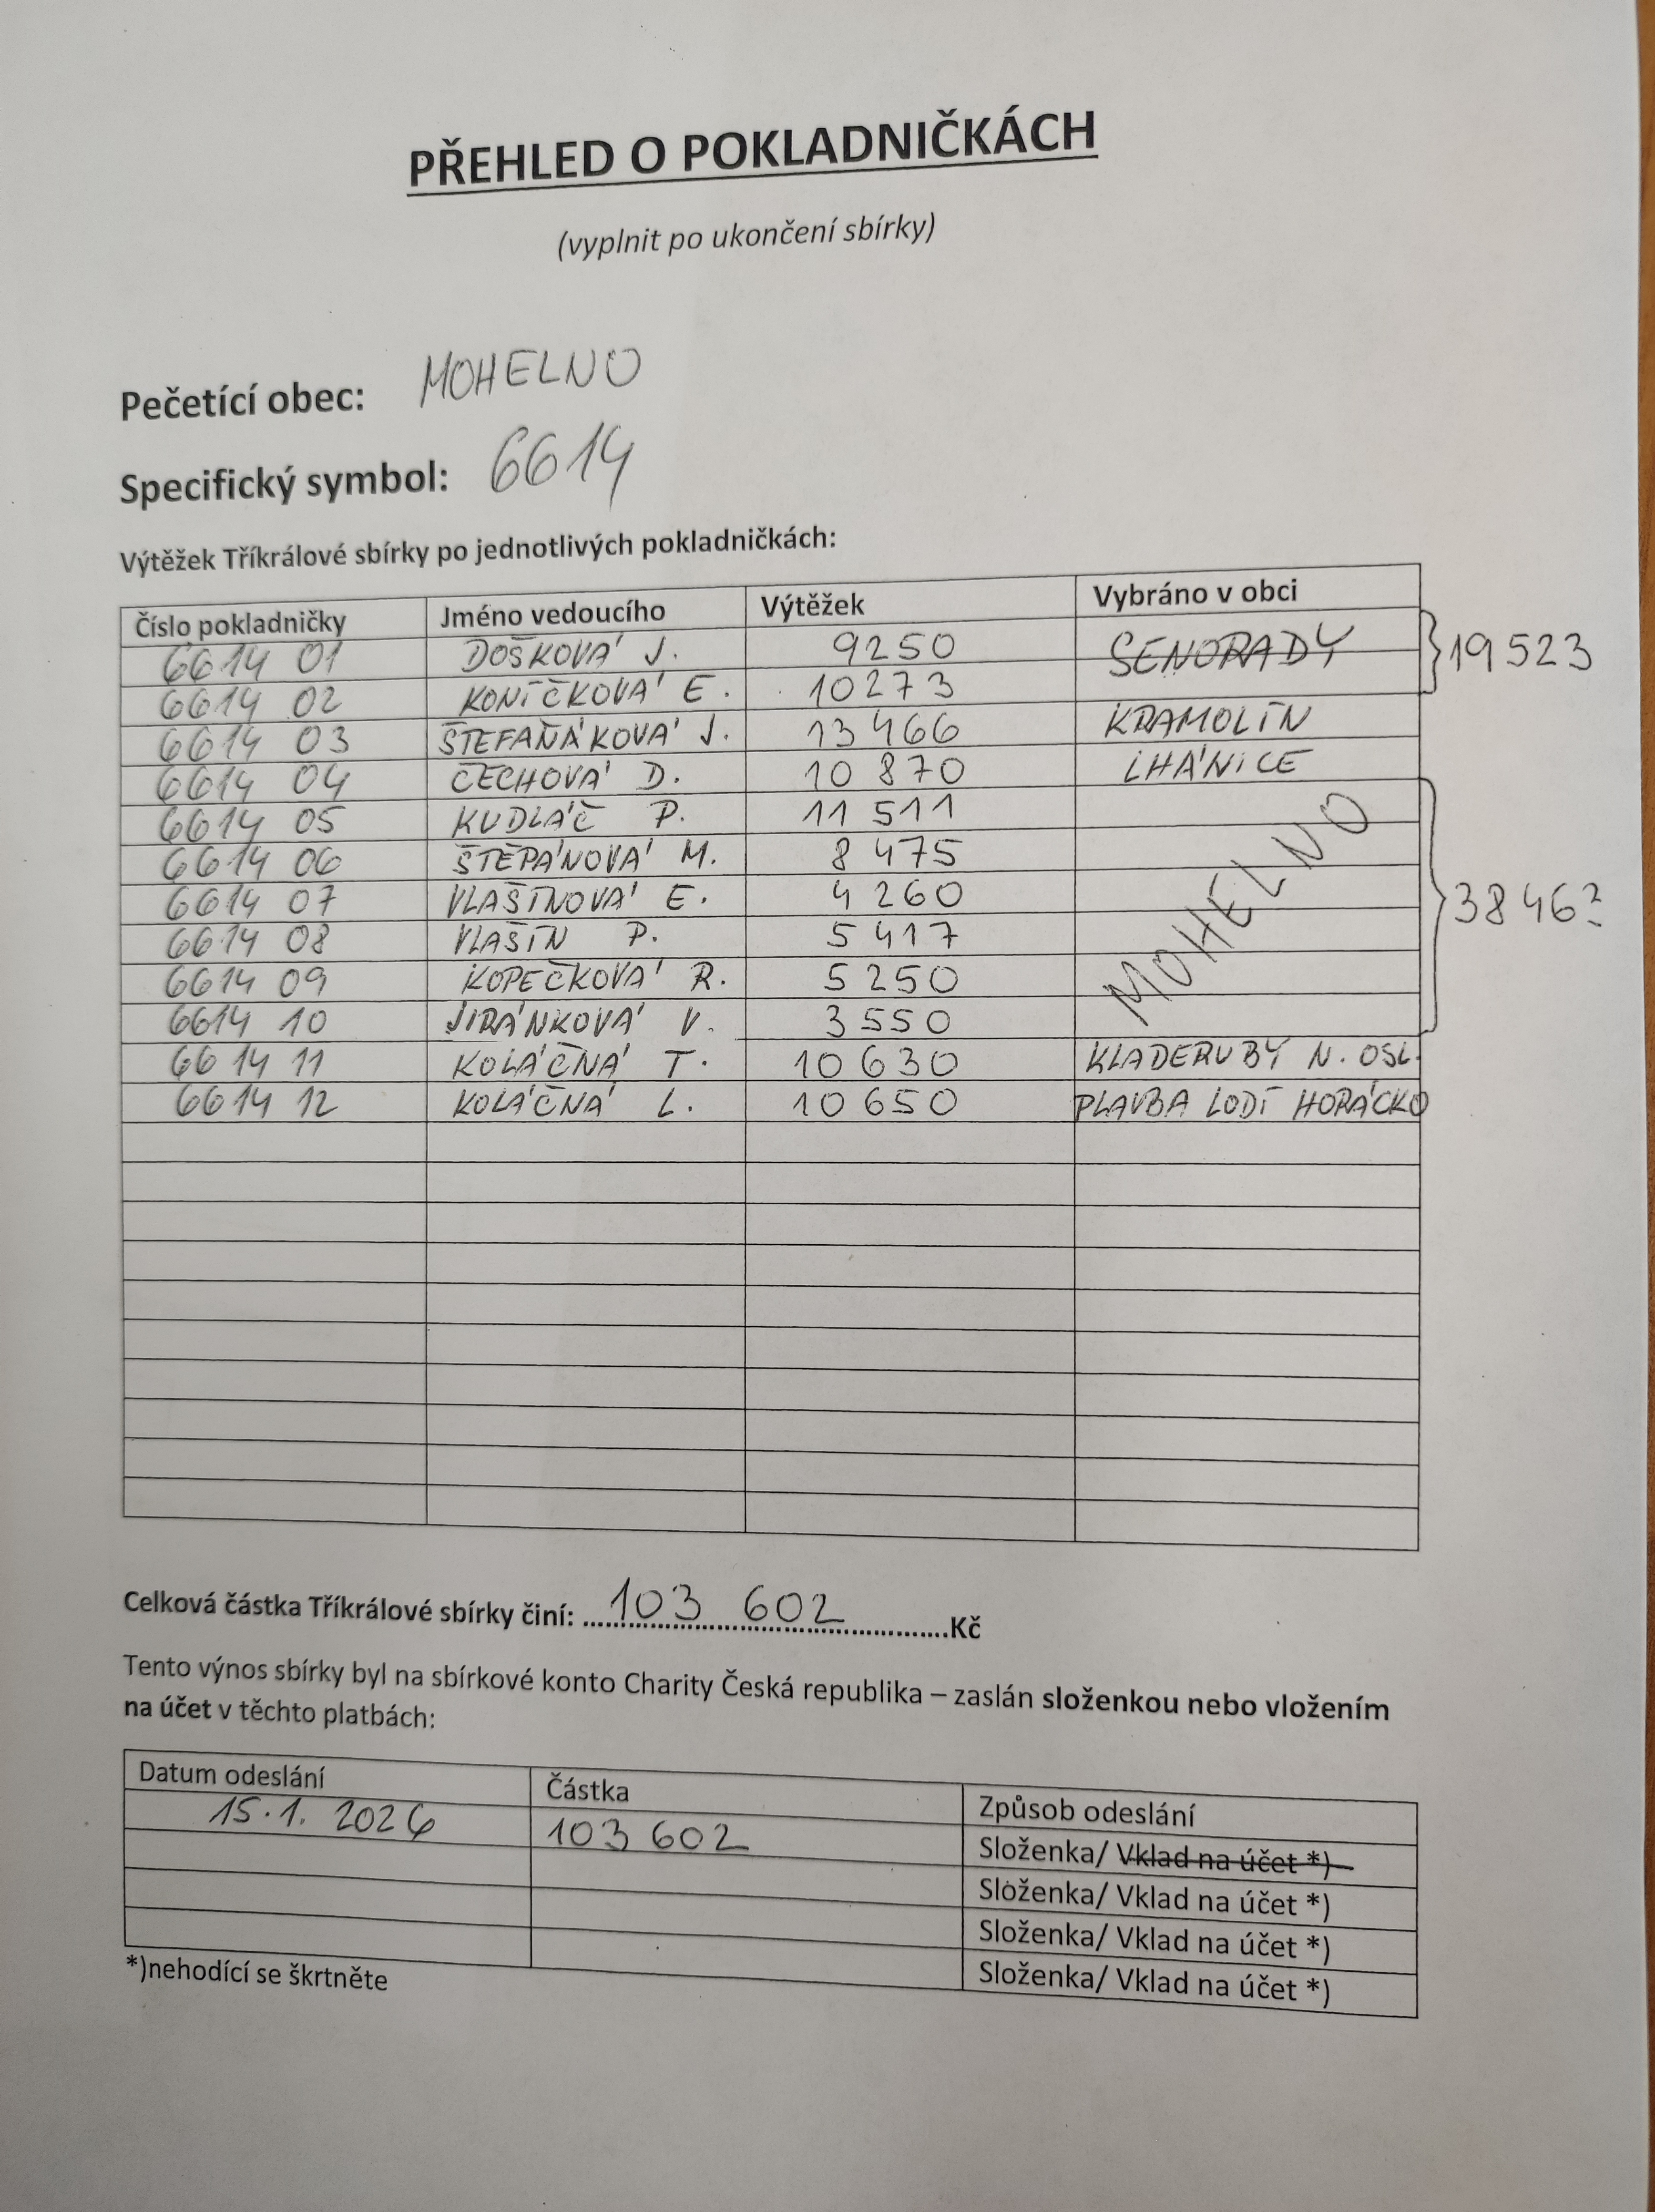 PŘEHLED O POKLADNIČKÁCH
(vyplnit po ukončení sbírky)
Pečetící obec: MOHELNO
Specifický symbol: 6614
Výtěžek Tříkrálové sbírky po jednotlivých pokladničkách:
Číslo pokladničky Jméno vedoucího Výtěžek Vybráno v obci
6614 01 DOŠKOVÁ J. 9250 SENORADY } 19 523
6614 02 KONÍČKOVÁ E. 10273
6614 03 ŠTEFAŇÁKOVÁ J. 13 466 KRAMOLÍN
6614 04 ČECHOVÁ D. 10 870 LHÁNICE
6614 05 KUDLÁČ P. 11 511
6614 06 ŠTĚPÁNOVÁ M. 8 475
6614 07 VLAŠÍNOVÁ E. 4 260 MOHELNO } 38 463
6614 08 VLAŠÍN P. 5 417
6614 09 KOPEČKOVÁ R. 5 250
6614 10 JIRÁNKOVÁ V. 3 550
6614 11 KOLÁČNÁ T. 10 630 KLADERUBY N. OSL.
6614 12 KOLÁČNÁ L. 10 650 PLAVBA LODÍ HORÁCKO
Celková částka Tříkrálové sbírky činí: 103 602 Kč
Tento výnos sbírky byl na sbírkové konto Charity Česká republika – zaslán složenkou nebo vložením
na účet v těchto platbách:
Datum odeslání Částka Způsob odeslání
15.1. 2026 103 602 Složenka/ Vklad na účet *)
Složenka/ Vklad na účet *)
Složenka/ Vklad na účet *)
Složenka/ Vklad na účet *)
*)nehodící se škrtněte